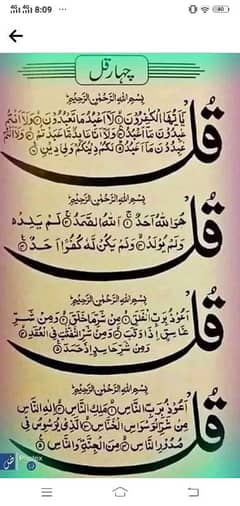 8:09
چہار قل
بِسْمِ اللهِ الرَّحْمٰنِ الرَّحِيْمِ
قُلْ
يٰاَيُّهَا الْكٰفِرُوْنَ ۙ لَاۤ اَعْبُدُ مَا تَعْبُدُوْنَ ۙ وَلَاۤ اَنْتُمْ
عٰبِدُوْنَ مَاۤ اَعْبُدُ ۚ وَلَاۤ اَنَا عَابِدٌ مَّا عَبَدْتُّمْ ۙ وَلَاۤ اَنْتُمْ
عٰبِدُوْنَ مَاۤ اَعْبُدُ ؕ لَكُمْ دِيْنُكُمْ وَلِيَ دِيْنِ
بِسْمِ اللهِ الرَّحْمٰنِ الرَّحِيْمِ
قُلْ
هُوَ اللهُ اَحَدٌ ۚ اَللهُ الصَّمَدُ ۚ لَمْ يَلِدْ ۙ
وَلَمْ يُوْلَدْ ۙ وَلَمْ يَكُنْ لَّهٗ كُفُوًا اَحَدٌ
بِسْمِ اللهِ الرَّحْمٰنِ الرَّحِيْمِ
قُلْ
اَعُوْذُ بِرَبِّ الْفَلَقِ ۙ مِنْ شَرِّ مَا خَلَقَ ۙ وَمِنْ شَرِّ
غَاسِقٍ اِذَا وَقَبَ ۙ وَمِنْ شَرِّ النَّفّٰثٰتِ فِي الْعُقَدِ ۙ
وَمِنْ شَرِّ حَاسِدٍ اِذَا حَسَدَ
بِسْمِ اللهِ الرَّحْمٰنِ الرَّحِيْمِ
قُلْ
اَعُوْذُ بِرَبِّ النَّاسِ ۙ مَلِكِ النَّاسِ ۙ اِلٰهِ النَّاسِ ۙ
مِنْ شَرِّ الْوَسْوَاسِ الْخَنَّاسِ ۙ الَّذِيْ يُوَسْوِسُ فِيْ
صُدُوْرِ النَّاسِ ۙ مِنَ الْجِنَّةِ وَالنَّاسِ